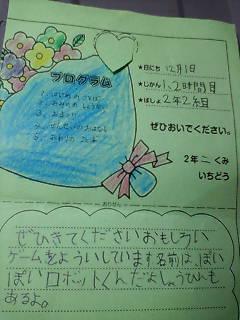 プログラム
1. はじめのことば
3. あそび
5. おわりのことば
★日にち 12月1日
★じかん 1、2時間目
★ばしょ 2年2組
ぜひおいでください。
2年 二 くみ
いちどう
おりせん
ぜひきてくださいおもしろい
ゲームをよういしています名前は、ぽい
ぽいロボットくんだよしょうひんも
あるよ。